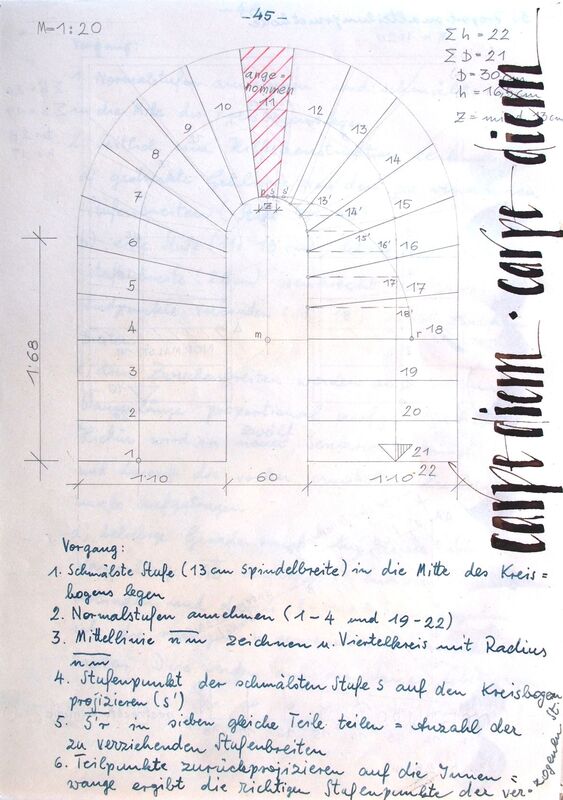 M=1:20
-45-
Σ h = 22
Σ D = 21
D = 30cm
h = 16,5cm
Z = mind. 13cm
ange=
nommen
11
10
12
9
13
8
14
7
15
6
16
5
17
4
18
3
19
2
20
1
21
22
n s s'
Z
13'
14'
15'
16'
17'
18'
m
r
1·68
1·10
60
1·10
carpe diem · carpe diem
Vorgang:
1. Schmälste Stufe (13cm Spindelbreite) in die Mitte des Kreis=
bogens legen
2. Normalstufen annehmen (1-4 und 19-22)
3. Mittellinie nm zeichnen u. Viertelkreis mit Radius
nm
4. Stufenpunkt der schmälsten Stufe s auf den Kreisbogen
projizieren (s')
5. S'r in sieben gleiche Teile teilen = Anzahl der
zu verziehenden Stufenbreiten
6. Teilpunkte zurückprojizieren auf die Innen=
wange ergibt die richtigen Stufenpunkte der ver-
zogenen St.